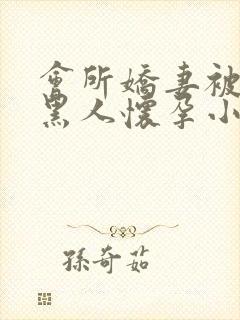 會所嬌妻被
黑人懷孕小
孫奇茹